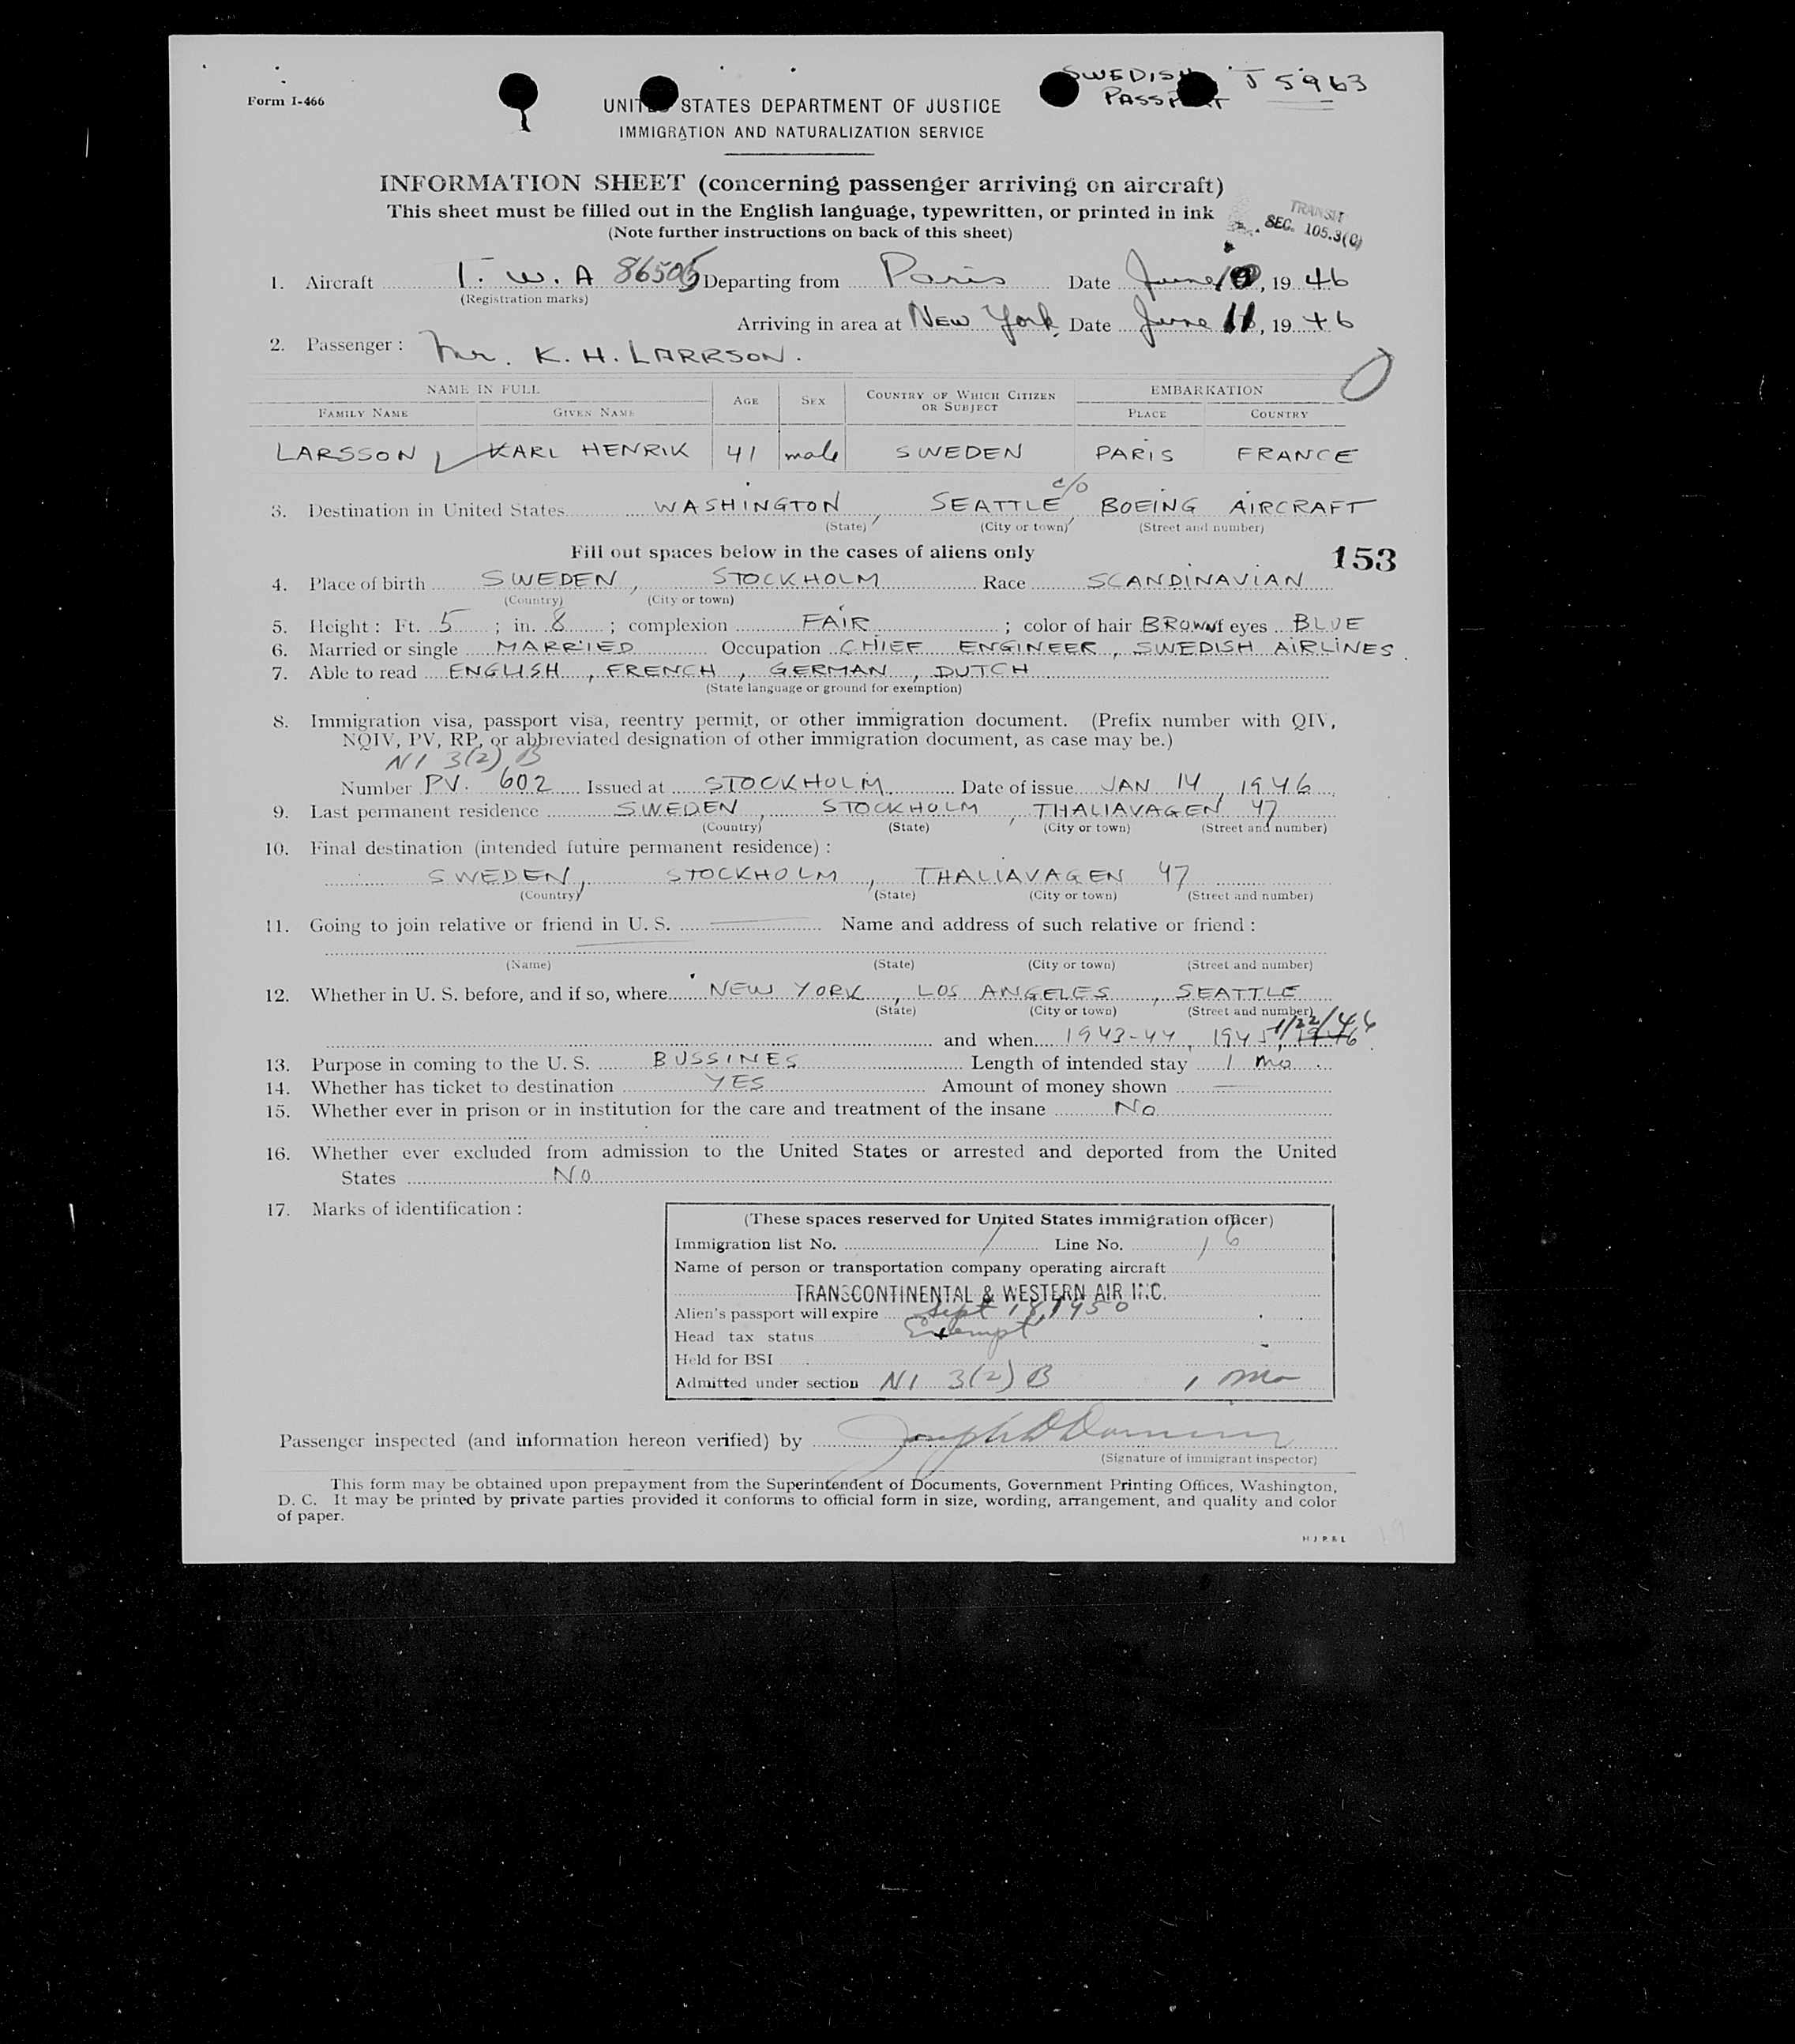 Form I-466
SWEDISH J 5963
UNITED STATES DEPARTMENT OF JUSTICE
IMMIGRATION AND NATURALIZATION SERVICE
INFORMATION SHEET (concerning passenger arriving on aircraft)
This sheet must be filled out in the English language, typewritten, or printed in ink
(Note further instructions on back of this sheet)
TRANSIT
SEC. 105.3(C)
1. Aircraft T. W. A 86505 Departing from Paris Date June 10, 19 46
(Registration marks)
Arriving in area at NEW York. Date June 11, 19 46
2. Passenger: Mr. K. H. LARRSON.
NAME IN FULL AGE SEX COUNTRY OF WHICH CITIZEN OR SUBJECT EMBARKATION
FAMILY NAME GIVEN NAME PLACE COUNTRY
LARSSON KARL HENRIK 41 male SWEDEN PARIS FRANCE
3. Destination in United States WASHINGTON, SEATTLE, c/o BOEING AIRCRAFT
(State) (City or town) (Street and number)
Fill out spaces below in the cases of aliens only
153
4. Place of birth SWEDEN, STOCKHOLM Race SCANDINAVIAN
(Country) (City or town)
5. Height: Ft. 5; in. 8; complexion FAIR; color of hair BROWN of eyes BLUE
6. Married or single MARRIED Occupation CHIEF ENGINEER, SWEDISH AIRLINES.
7. Able to read ENGLISH, FRENCH, GERMAN, DUTCH
(State language or ground for exemption)
8. Immigration visa, passport visa, reentry permit, or other immigration document. (Prefix number with QIV,
NQIV, PV, RP, or abbreviated designation of other immigration document, as case may be.)
NI 3(2) B
Number PV. 602 Issued at STOCKHOLM Date of issue JAN 14, 1946
9. Last permanent residence SWEDEN, STOCKHOLM, THALIAVAGEN 47
(Country) (State) (City or town) (Street and number)
10. Final destination (intended future permanent residence):
SWEDEN, STOCKHOLM, THALIAVAGEN 47
(Country) (State) (City or town) (Street and number)
11. Going to join relative or friend in U. S. Name and address of such relative or friend:
(Name) (State) (City or town) (Street and number)
12. Whether in U. S. before, and if so, where NEW YORK, LOS ANGELES, SEATTLE
(State) (City or town) (Street and number)
and when 1943-44, 1945, 1946 1/22/46
13. Purpose in coming to the U. S. BUSSINES Length of intended stay 1 mo.
14. Whether has ticket to destination YES Amount of money shown —
15. Whether ever in prison or in institution for the care and treatment of the insane No
16. Whether ever excluded from admission to the United States or arrested and deported from the United
States No
17. Marks of identification:
(These spaces reserved for United States immigration officer)
Immigration list No. 1 Line No. 16
Name of person or transportation company operating aircraft
TRANSCONTINENTAL & WESTERN AIR INC.
Alien's passport will expire Sept 18, 1950
Head tax status Exempt
Held for BSI
Admitted under section NI 3(2) B 1 mo
Passenger inspected (and information hereon verified) by
(Signature of immigrant inspector)
This form may be obtained upon prepayment from the Superintendent of Documents, Government Printing Offices, Washington,
D. C. It may be printed by private parties provided it conforms to official form in size, wording, arrangement, and quality and color
of paper.
H J P & L